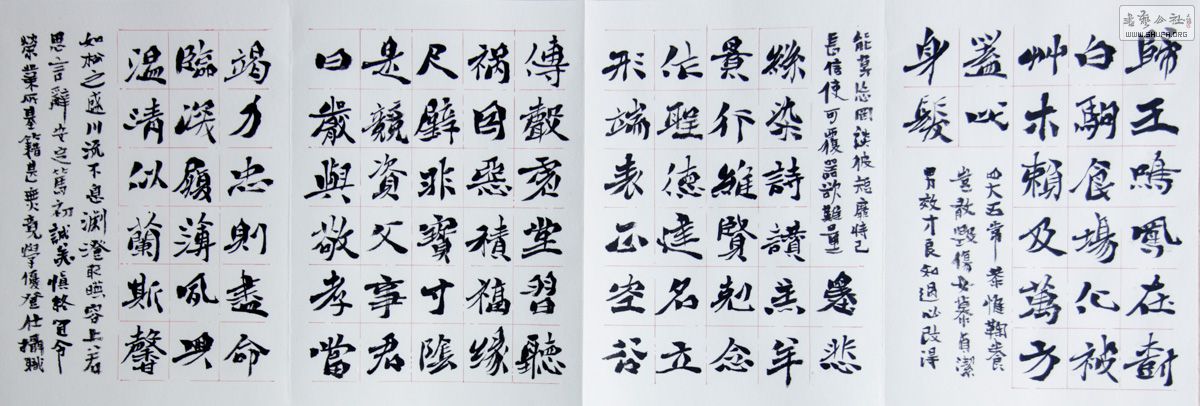 歸王鳴鳳在樹
白駒食場化被
艸木賴及萬方
蓋此
身髮
四大五常恭惟鞠養
豈敢毀傷女慕貞潔
男效才良知過必改得
能莫忘罔談彼短靡恃己
長信使可覆器欲難量
墨悲
絲染詩讚羔羊
景行維賢剋念
作聖德建名立
形端表正空谷
傳聲虛堂習聽
禍因惡積福緣
尺璧非寶寸陰
是競資父事君
曰嚴與敬孝當
竭力忠則盡命
臨深履薄夙興
溫清似蘭斯馨
如松之盛川流不息淵澄取映容止若
思言辭安定篤初誠美慎終宜令
榮業所基籍甚無竟學優登仕攝職
書藝公社